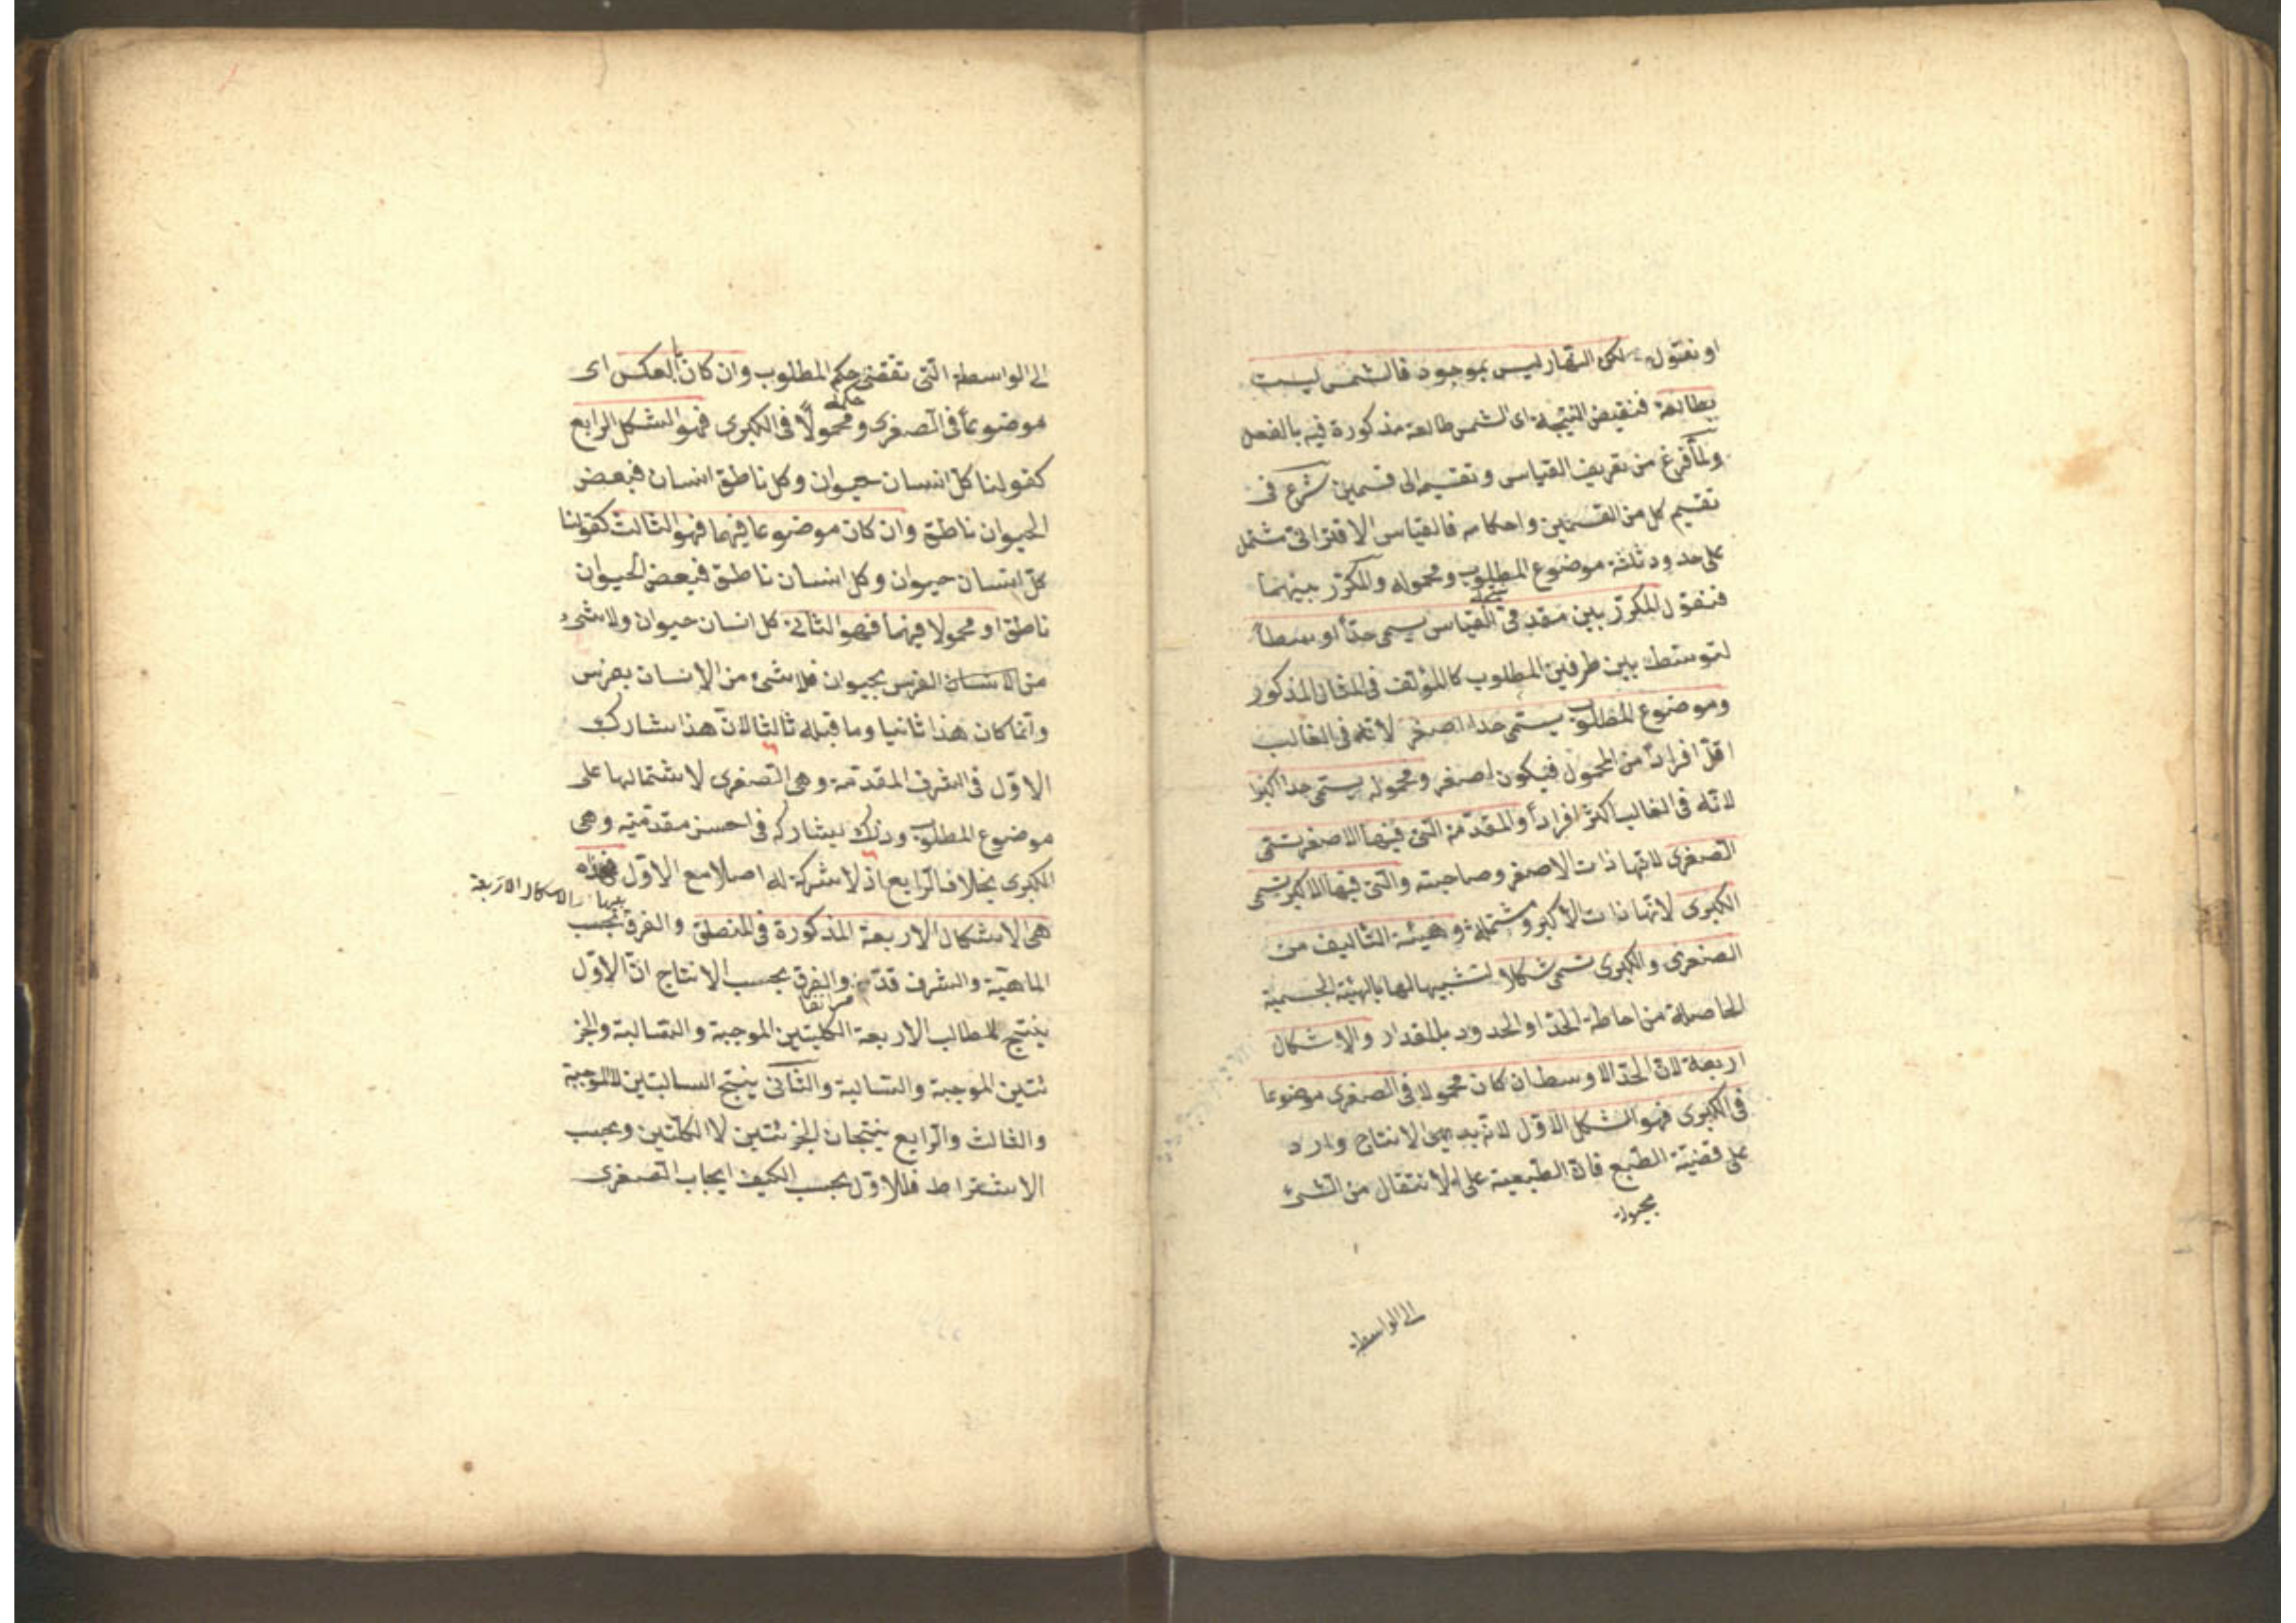 او نقول لكن النهار ليس بموجود فالشمس ليست
بطالعة فنقيض النتيجة اى الشمس طالعة مذكورة فيه بالفعل
ولما فرغ من تعريف القياس وتقسيمه الى قسمين شرع فى
تقسيم كل من القسمين واحكامه فالقياس الاقترانى مشتمل
على حدود ثلثة موضوع المطلوب ومحموله والمكرّر بينهما
فنقول المكرّر بين مقدمتى القياس يسمى حدّاً اوسطاً
لتوسطه بين طرفين المطلوب كالمؤلف فى المثال المذكور
وموضوع المطلوب يسمى حدا اصغر لانه فى الغالب
اقلّ افراداً من المحمول فيكون اصغر ومحموله يسمى حدا اكبرا
لانه فى الغالب اكثر افراداً والمقدّمة التى فيها الاصغر يسمّى
الصّغرى لانها ذات الاصغر وصاحبته والتى فيها الاكبر يسمى
الكبرى لانها ذات الاكبر ومشتملة وهيئة التأليف من
الصغرى والكبرى تسمى شكلا لتشبيهها لها بالهيئة الجسمية
الحاصلة من احاطة الحدّ او الحدود بالمقدار والاشكال
اربعة لانّ الحدّ الاوسط ان كان محمولا فى الصغرى موضوعا
فى الكبرى فهو الشكل الاوّل لانه بديهىّ الانتاج وارد
على قضيّة الطّبع فانّ الطّبيعة على الانتقال من الشىء
مجبولة
الى الواسطة
الى الواسطة التى تقتضى حكم المطلوب وان كان بالعكس اى
موضوعاً فى الصغرى ومحمولاً فى الكبرى فهو الشكل الرابع
كقولنا كلّ انسان حيوان وكل ناطق انسان فبعض
الحيوان ناطق وان كان موضوعا فيهما فهو الثالث كقولنا
كلّ انسان حيوان وكل انسان ناطق فبعض الحيوان
ناطق او محمولا فيهما فهو الثانى كل انسان حيوان ولا شىء
من الانسان الفرس بحيوان فلا شىء من الانسان بفرس
وانما كان هذا ثانيا وما قبله ثالثا لانّ هذا يشارك
الاوّل فى اشرف المقدّمة وهى الصّغرى لاشتمالها على
موضوع المطلوب وذلك يشاركه فى احسن مقدّمتيه وهى
الكبرى بخلاف الرابع اذ لا شركة له اصلا مع الاوّل فهذه
بينها الاشكال الاربعة
هى الاشكال الاربعة المذكورة فى المنطق والفرق بحسب
الماهيّة والشرف قدّمه والفرق بحسب الانتاج انّ الاوّل
مرّ آنفا
ينتج المطالب الاربعة الكليتين الموجبة والسّالبة والجز
ئتين الموجبة والسّالبة والثّانى ينتج السالبتين لا الموجبة
والثالث والرّابع ينتجان الجزئتين لا الكلّتين وبحسب
الاشتراط فللاوّل بحسب الكيف ايجاب الصّغرى